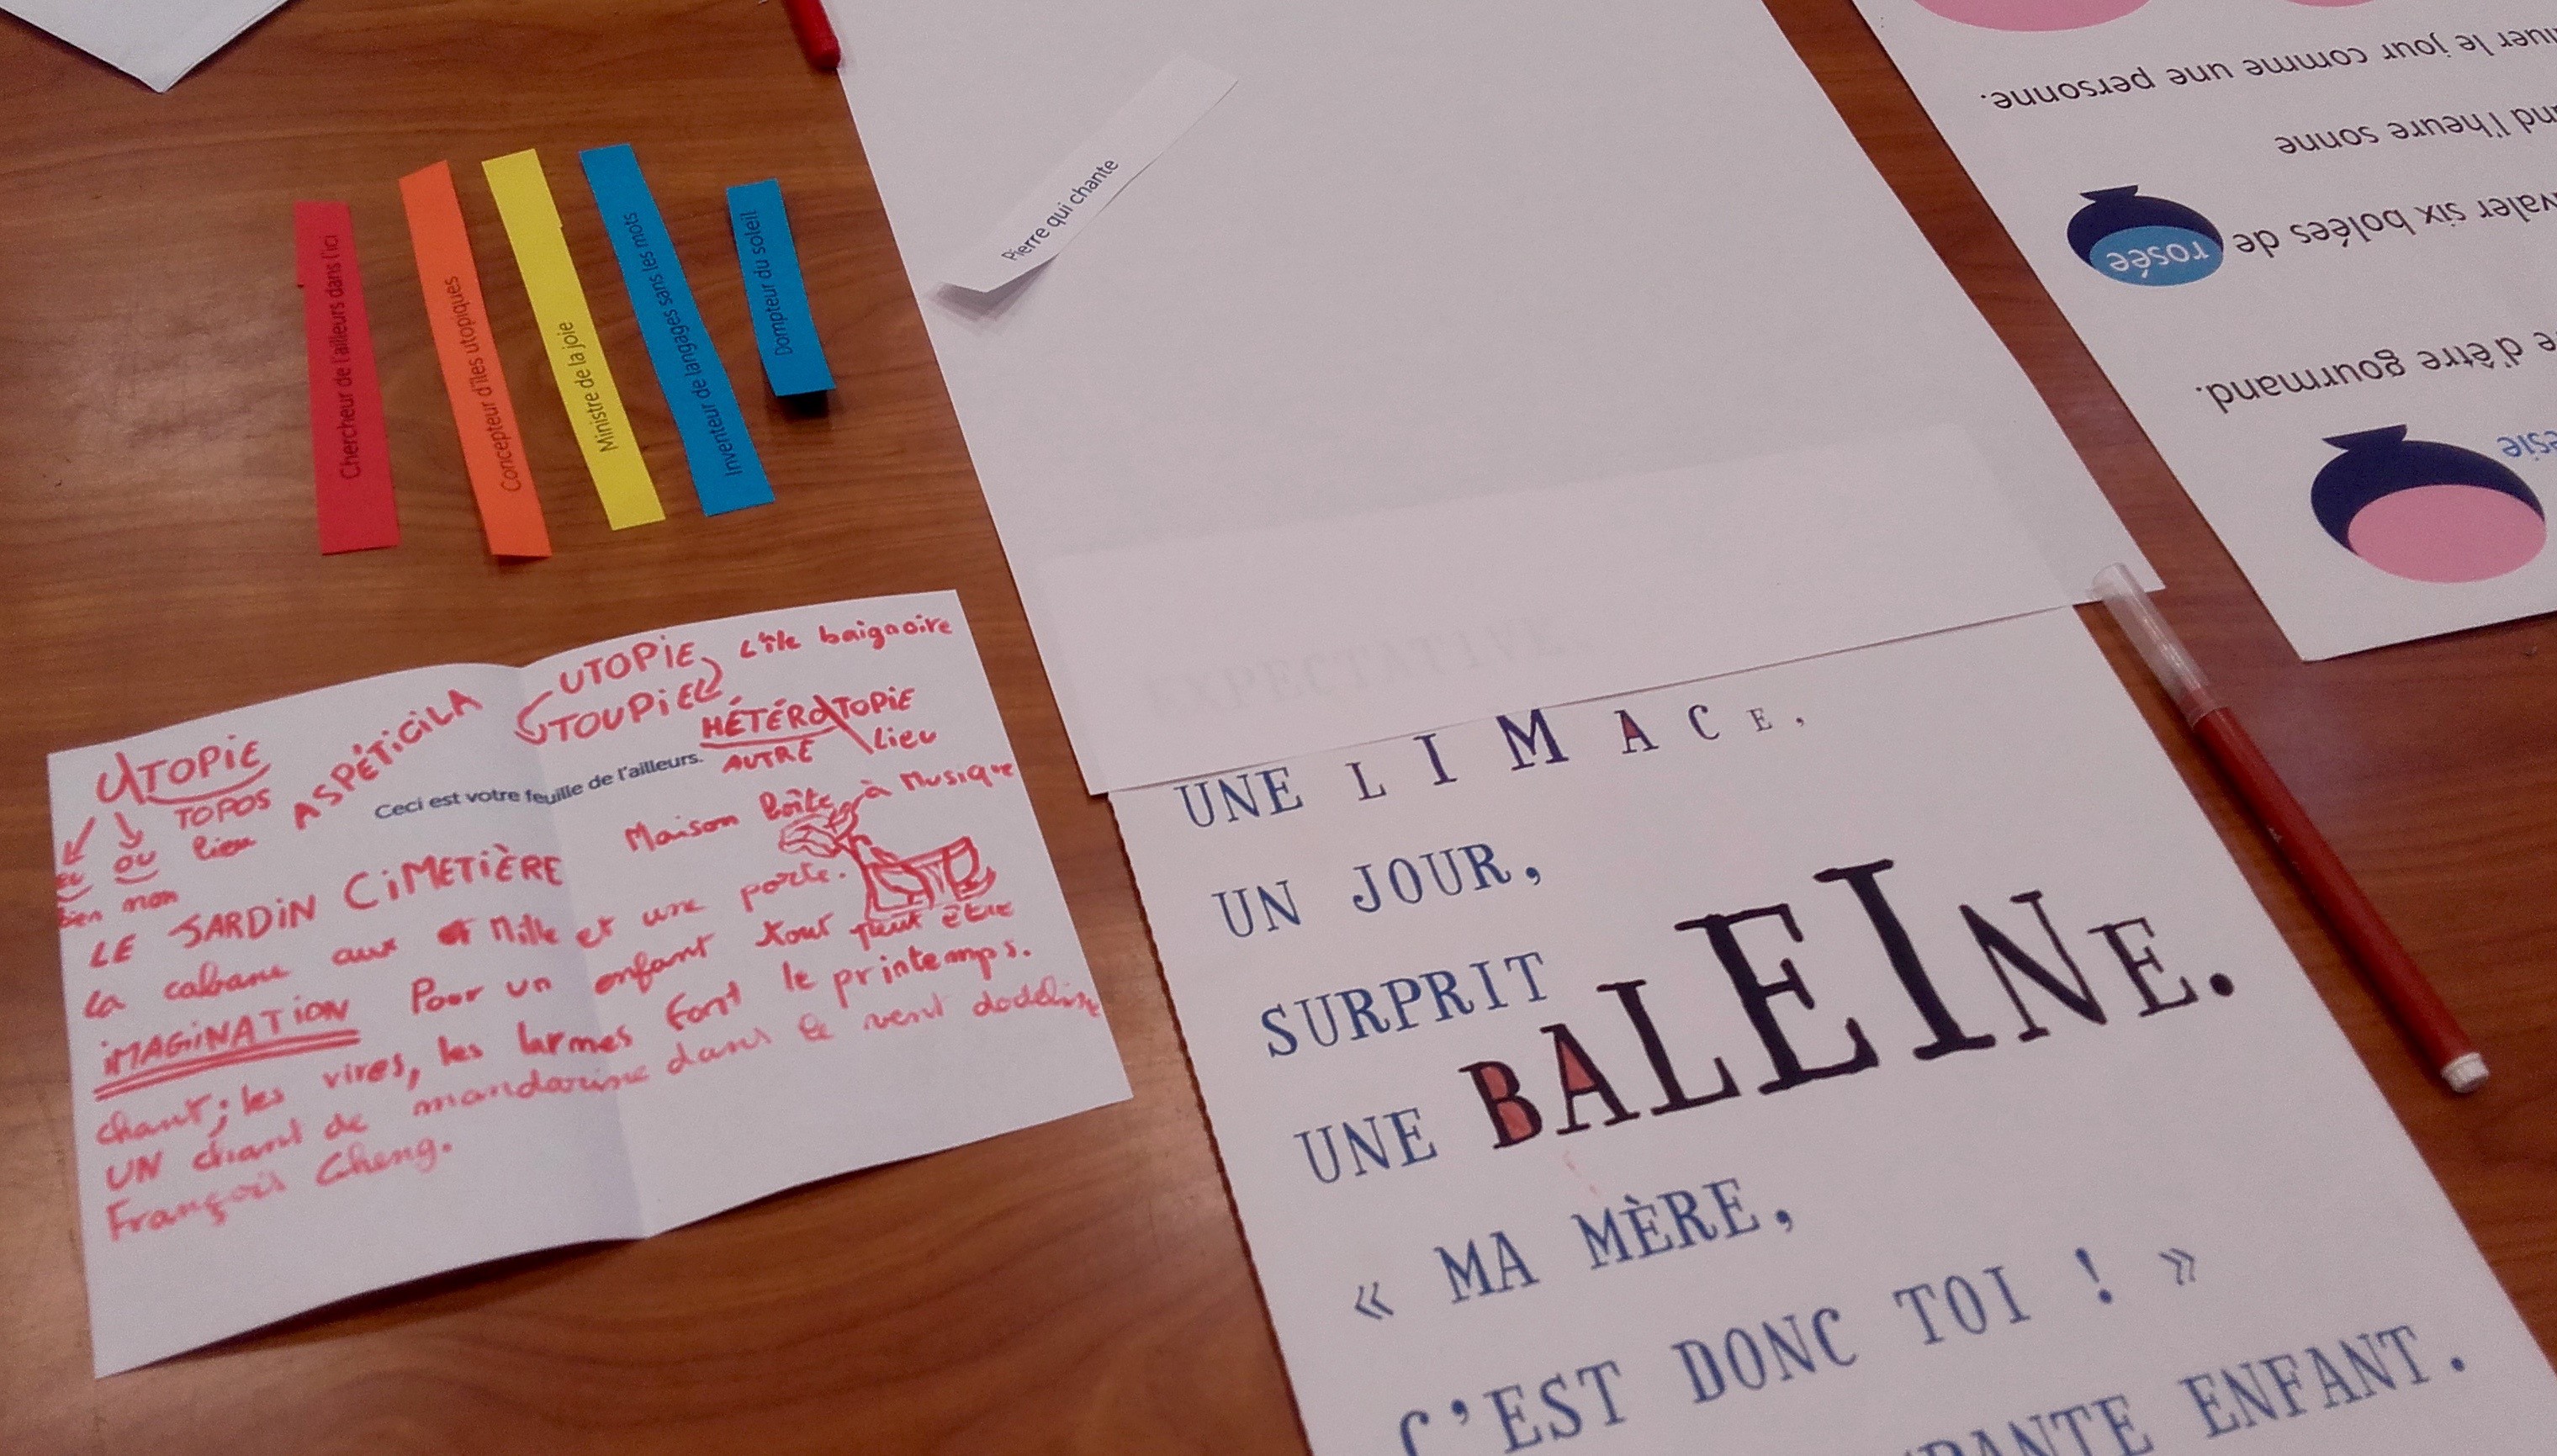 Chercheur de l'ailleurs dans l'ici
Concepteur d'îles utopiques
Ministre de la joie
Inventeur de langages sans les mots
Dompteur du soleil
Pierre qui chante
UTOPiE
TOPOS
lieu
ou
bien non
ASPÉTiCiLA
UTOPiE
TOUPiE
L'île baignoire
HÉTÉROTOPiE
AUTRE lieu
Ceci est votre feuille de l'ailleurs.
Maison boîte à Musique
LE JARDiN CiMETiÈRE
La cabane aux Mille et une porte.
iMAGiNATiON Pour un enfant tout peut être
chant; les vires, les larmes font le printemps.
UN chant de mandarine dans le vent dodeline
François Cheng.
EXPECTATIVE.
UNE LIMACE,
UN JOUR,
SURPRIT
UNE BALEINE.
« MA MÈRE,
C'EST DONC TOI ! »
ENFANT.
esie
e d'être gourmand.
valer six bolées de rosée
nd l'heure sonne
uer le jour comme une personne.